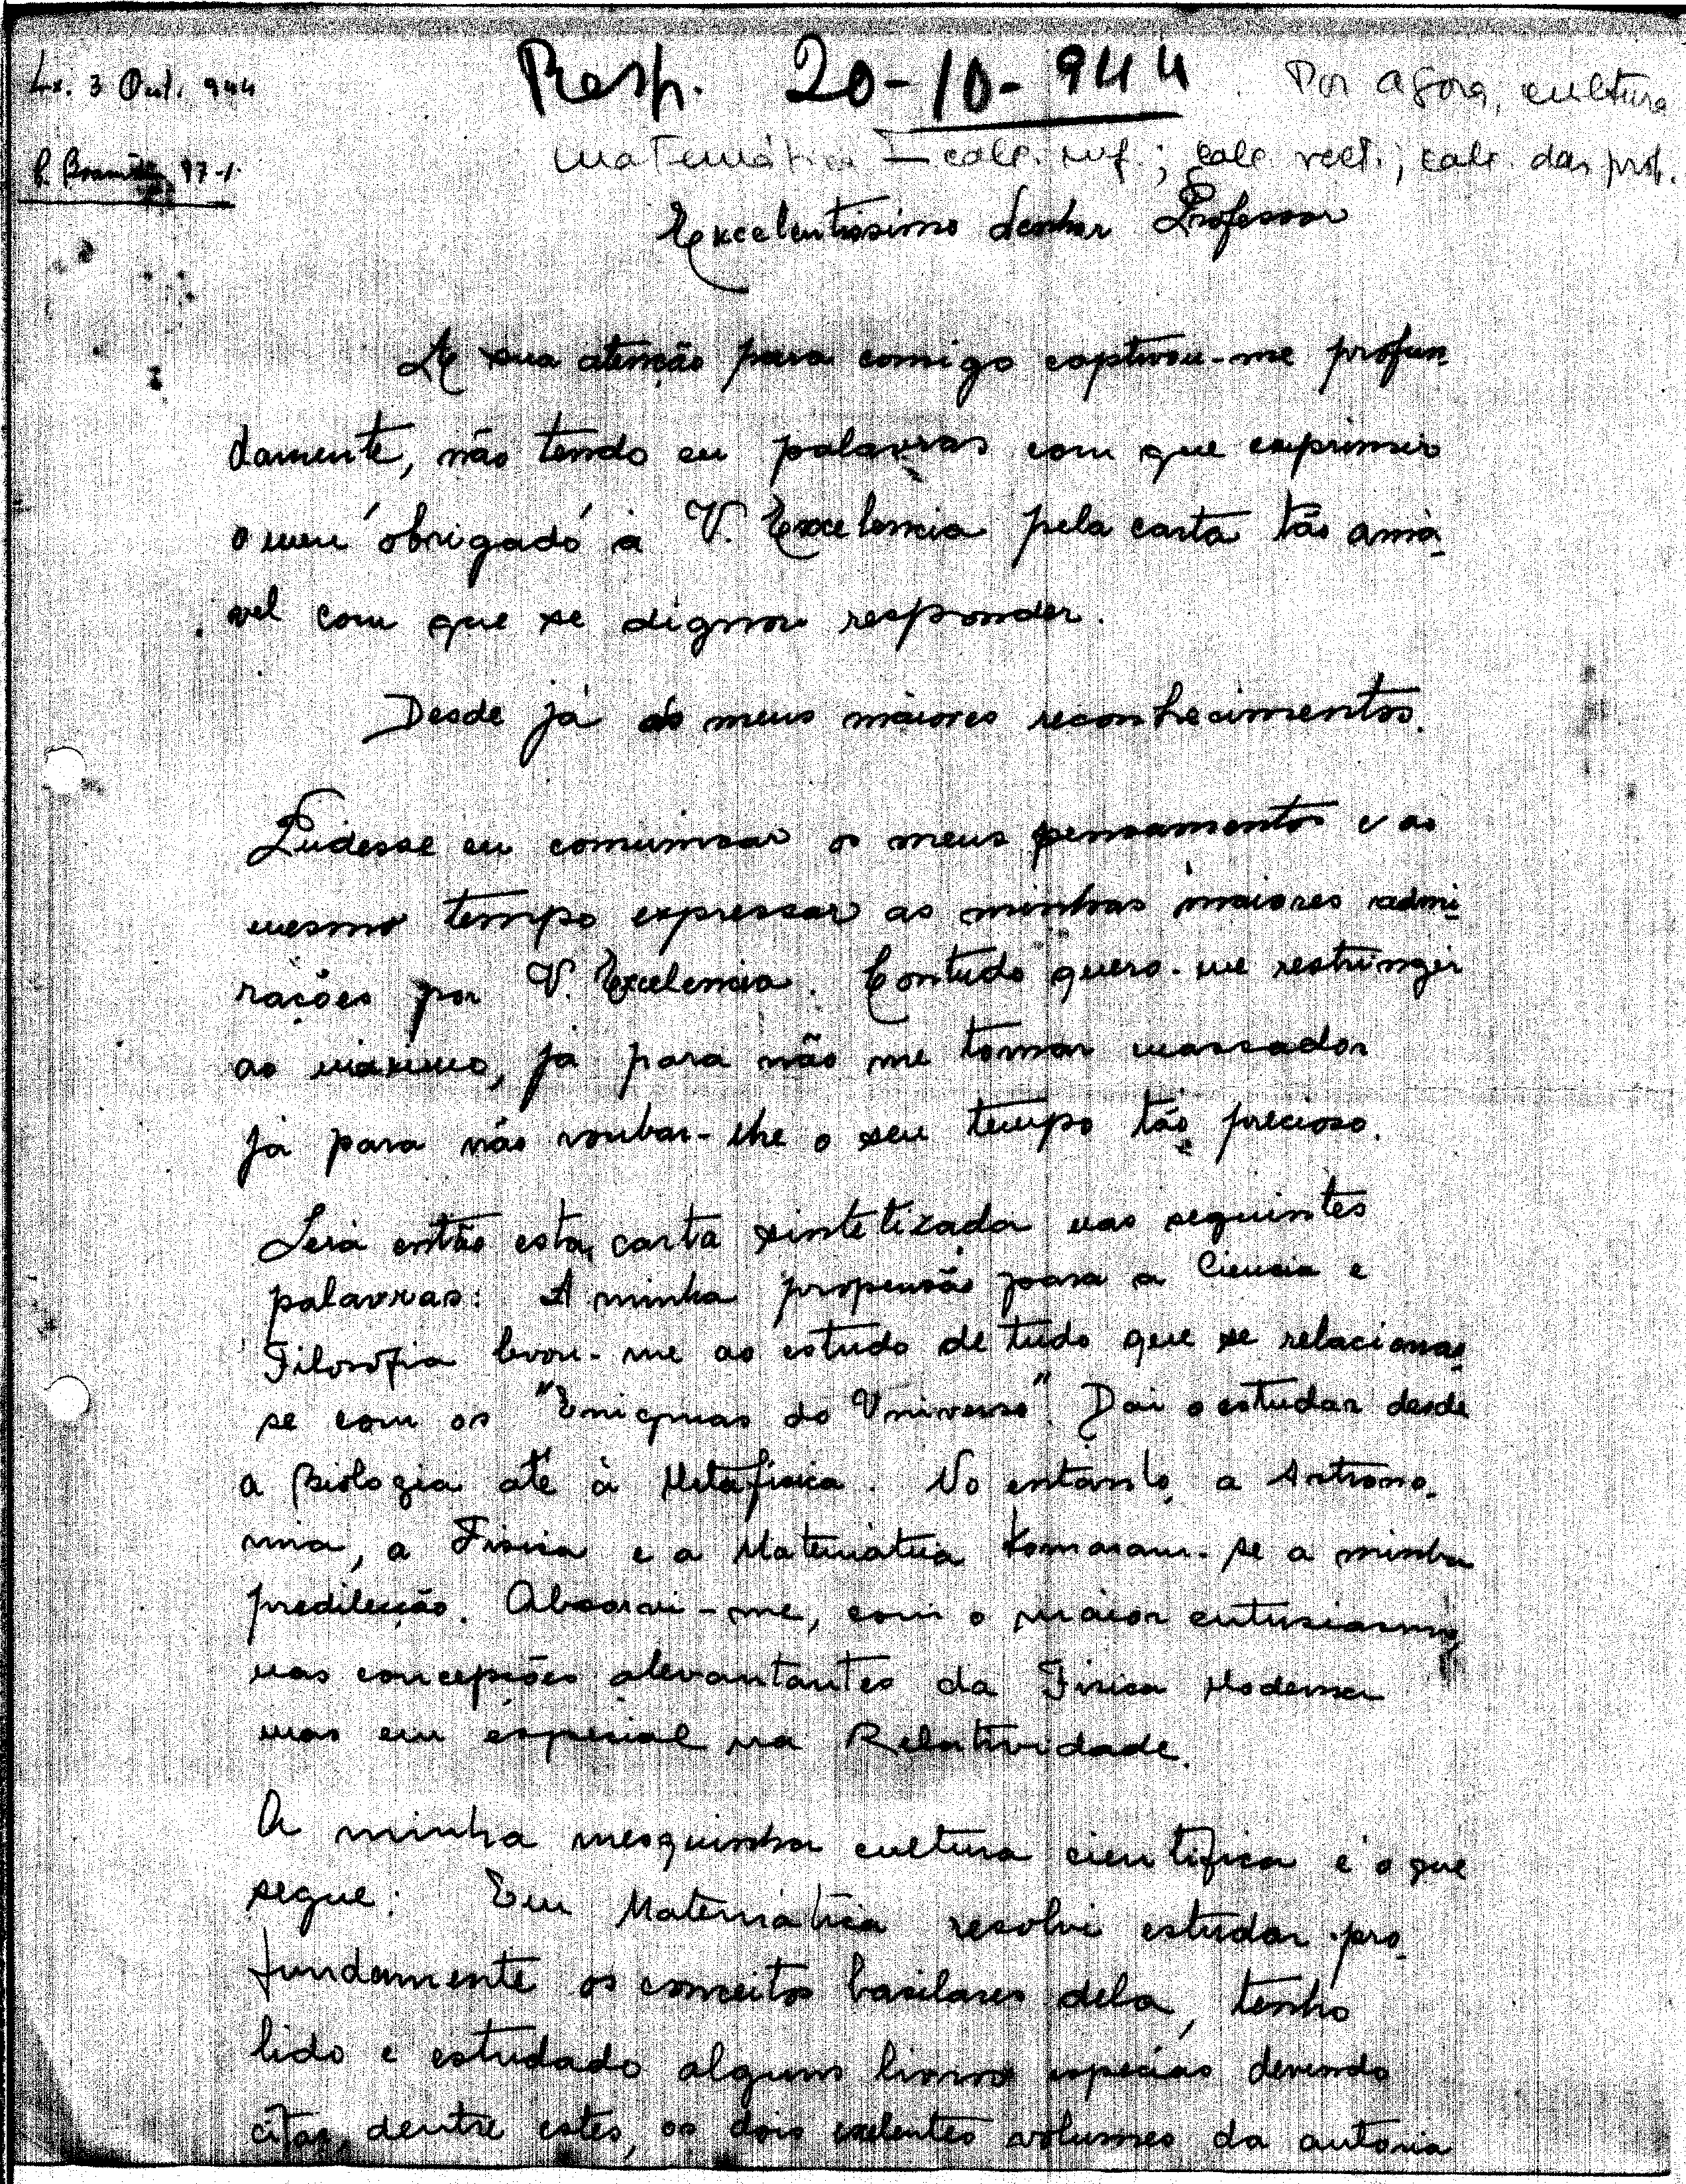 Lx. 3 Out. 944
Resp. 20-10-944
Por agora, cultura
matemática — calc. inf.; calc. vect.; calc. das prob.
97-1.
Excelentissimo Senhor Professor
A sua atenção para comigo captivou-me profun-
damente, não tendo eu palavras com que exprimir
o meu 'obrigado' à V. Excelencia pela carta tão amá-
vel com que se dignou responder.
Desde já os meus maiores reconhecimentos.
Pudesse eu comunicar os meus pensamentos e ao
mesmo tempo expressar as minhas maiores admi-
rações por V. Excelencia. Contudo quero-me restringir
ao máximo, já para não me tornar massador
já para não roubar-lhe o seu tempo tão precioso.
Será então esta carta sintetizada nas seguintes
palavras: A minha propensão para a Ciencia e
Filosofia levou-me ao estudo de tudo que se relacionas-
se com os "Enigmas do Universo". Dai o estudar desde
a Biologia até à Metafisica. No entanto, a Astrono-
mia, a Fisica e a Matemática tornaram-se a minha
predilecção. Absorvi-me, com o maior entusiasmo,
nas concepções alevantantes da Fisica Moderna
mas em especial na Relatividade.
A minha mesquinha cultura cientifica é o que
segue: Em Matemática resolvi estudar pro-
fundamente os conceitos basilares dela, tenho
lido e estudado alguns livros especiais devendo
citar, dentre estes, os dois exelentes volumes da autoria